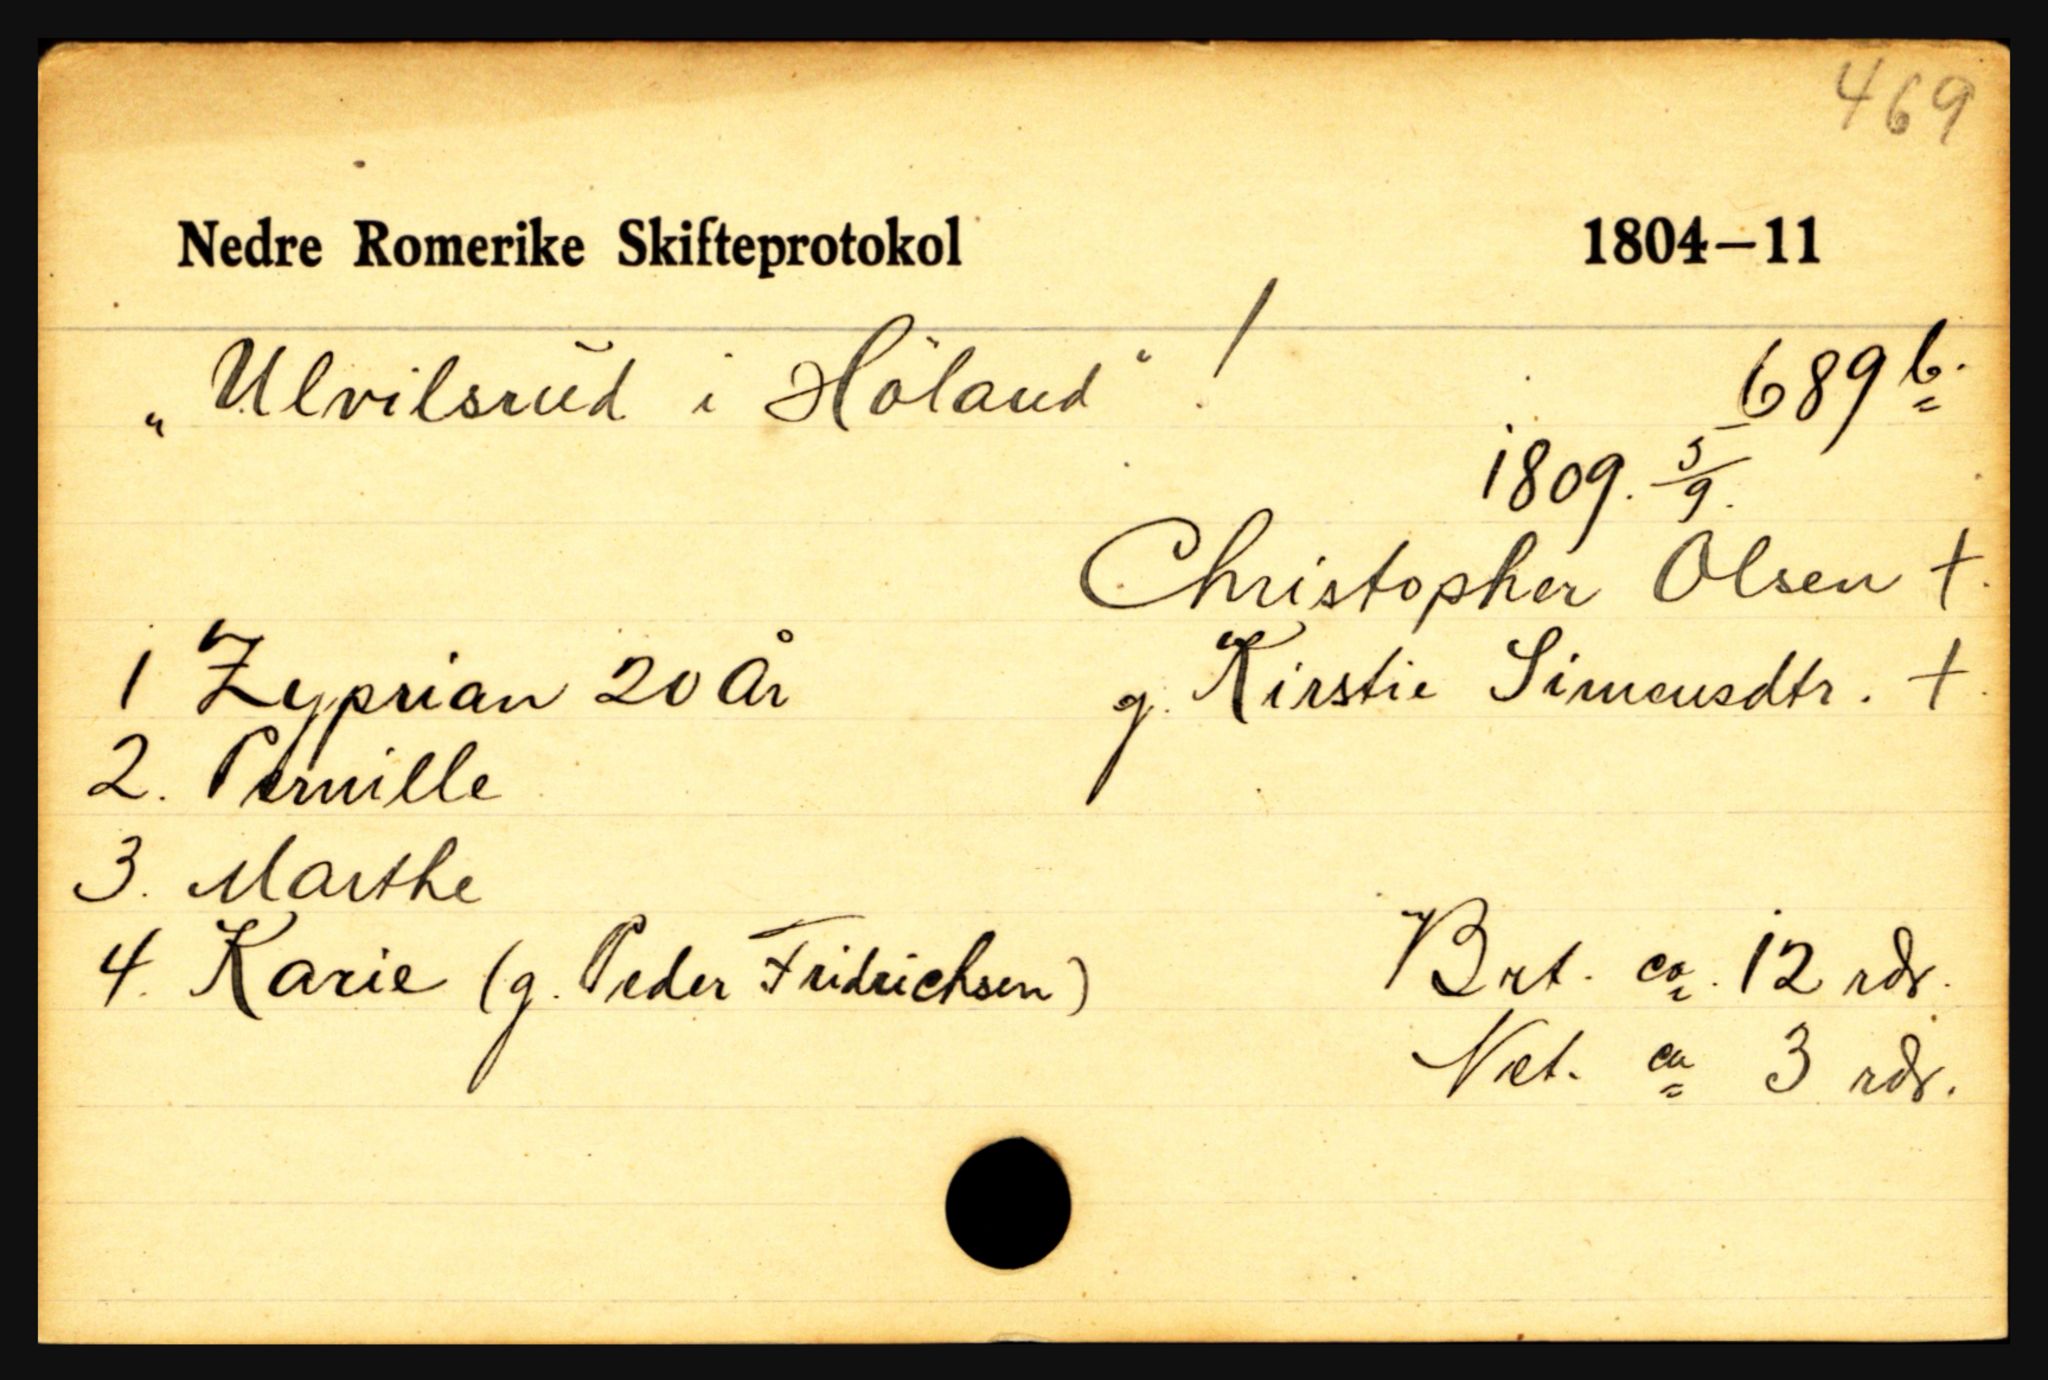 469
Nedre Romerike Skifteprotokol 1804–11
„Ulvilsrud i Höland" !
689 b.
1809. 5/9.
Christopher Olsen †.
g. Kirstie Simensdtr. †.
1 Zyprian 20 År
2. Pernille
3. Marthe
4. Karie (g. Peder Fridrichsen)
Brt. ca. 12 rdr.
Net. ca 3 rdr.